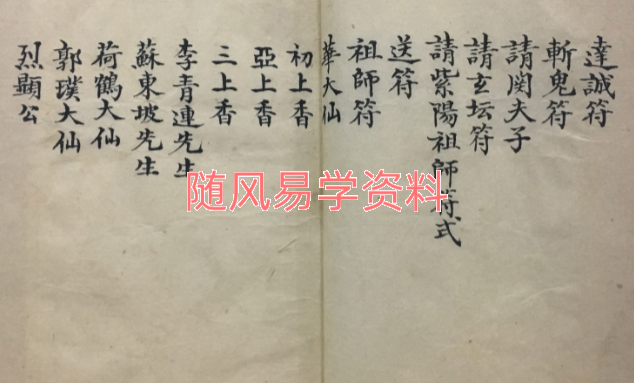 達誠符
斬鬼符
請関夫子
請玄坛符
請紫陽祖師符式
送符
祖師符
華大仙
初上香
亞上香
三上香
李青連先生
蘇東坡先生
荷鶴大仙
郭璞大仙
烈顯公
随风易学资料